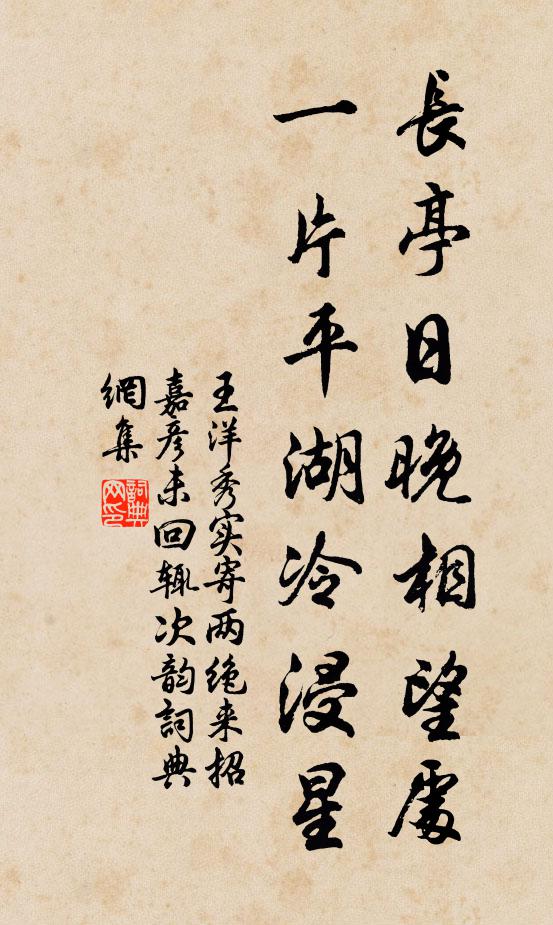 長亭日晚相望處
一片平湖冷浸星
王洋秀实寄两绝来招
嘉彦未回辄次韵詞典
網集
詞典
网印